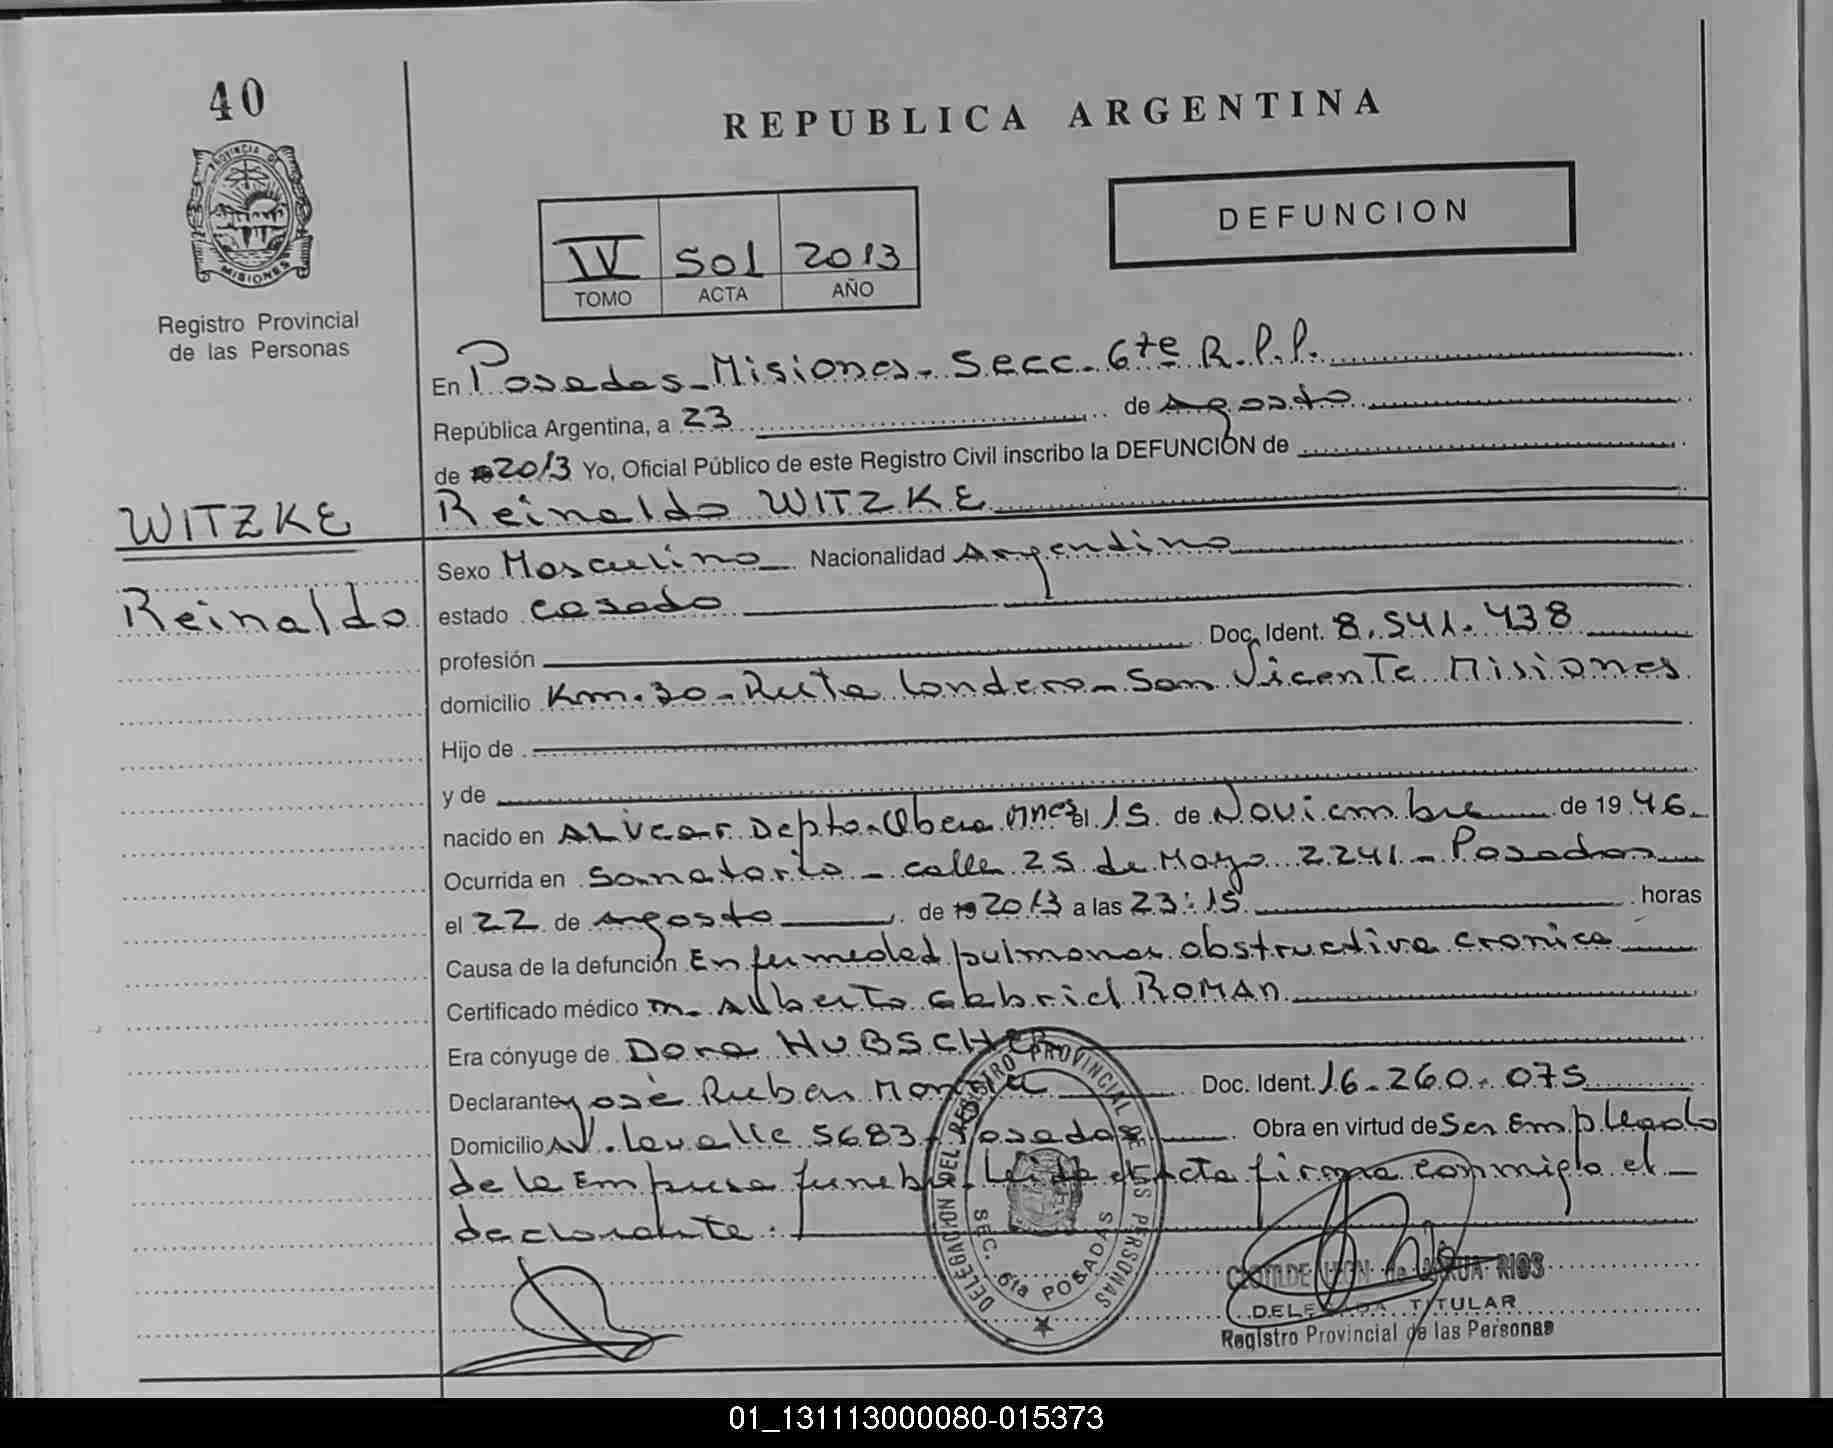 40
REPUBLICA ARGENTINA
PROVINCIA DE
MISIONES
Registro Provincial
de las Personas
DEFUNCION
IV 501 2013
TOMO ACTA AÑO
En Posadas - Misiones - Secc. 6te R.P.P.
República Argentina, a 23 de Agosto
de 2013 Yo, Oficial Público de este Registro Civil inscribo la DEFUNCIÓN de
WITZKE
Reinaldo WITZKE
Sexo Masculino Nacionalidad Argentino
Reinaldo
estado casado
profesión Doc. Ident. 8.541.438
domicilio Km. 30 - Ruta Londero - San Vicente Misiones
Hijo de
y de
nacido en ALVear Depto. Obera Mnes el 15 de Noviembre de 1946
Ocurrida en Sanatorio - calle 25 de Mayo 2241 - Posadas
el 22 de Agosto de 2013 a las 23:15 horas
Causa de la defunción Enfermedad pulmonar obstructiva cronica
Certificado médico m. Alberto Gabriel ROMAN
Era cónyuge de Dora HUBSCHER
Declarante José Ruben Doc. Ident. 16.260.075
Domicilio AV. Lavalle 5683 - Posadas Obra en virtud de Ser Empleado
de la Empresa funebre. Leida el Acta firma conmigo el
declarante:
DELEGACION DEL REGISTRO PROVINCIAL DE LAS PERSONAS
SEC. 6ta POSADAS
RIOS
DELEGADA TITULAR
Registro Provincial de las Personas
01_131113000080-015373